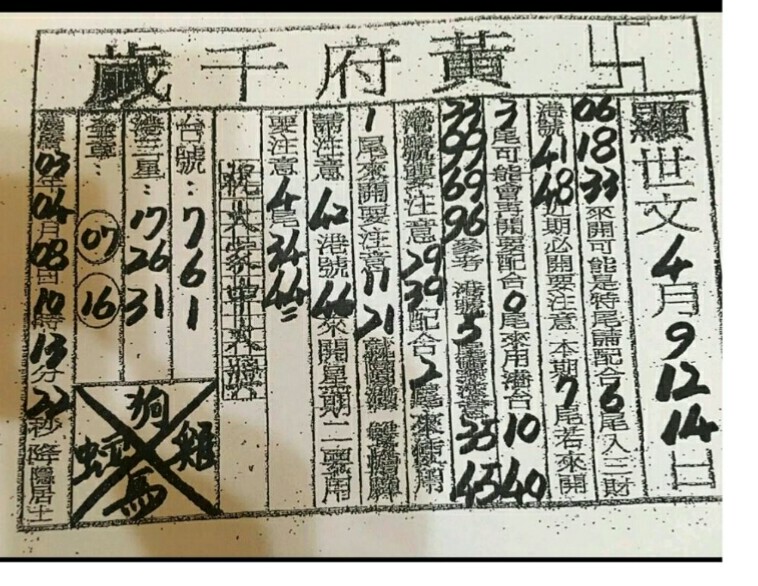 黃府千歲
顯世文4月9 12 14日
06 18 33來開可能是特尾論配合6尾入三財
港號41 48近期必開要注意 本期7尾若來開
3尾可能會再開要配合0尾來用港台10 40
33 99 69 96參考 港號5尾 35 45
港號雙注意29 39配合2尾來使用
1尾來開要注意11 21
請注意42港號46來開星期二要用
要注意4尾34 44
祝大家中
台號:7 6 1
港三星:17 26 31
07 16
03年04月08日10時13分22秒降隱居士
狗
蛇 雞
馬